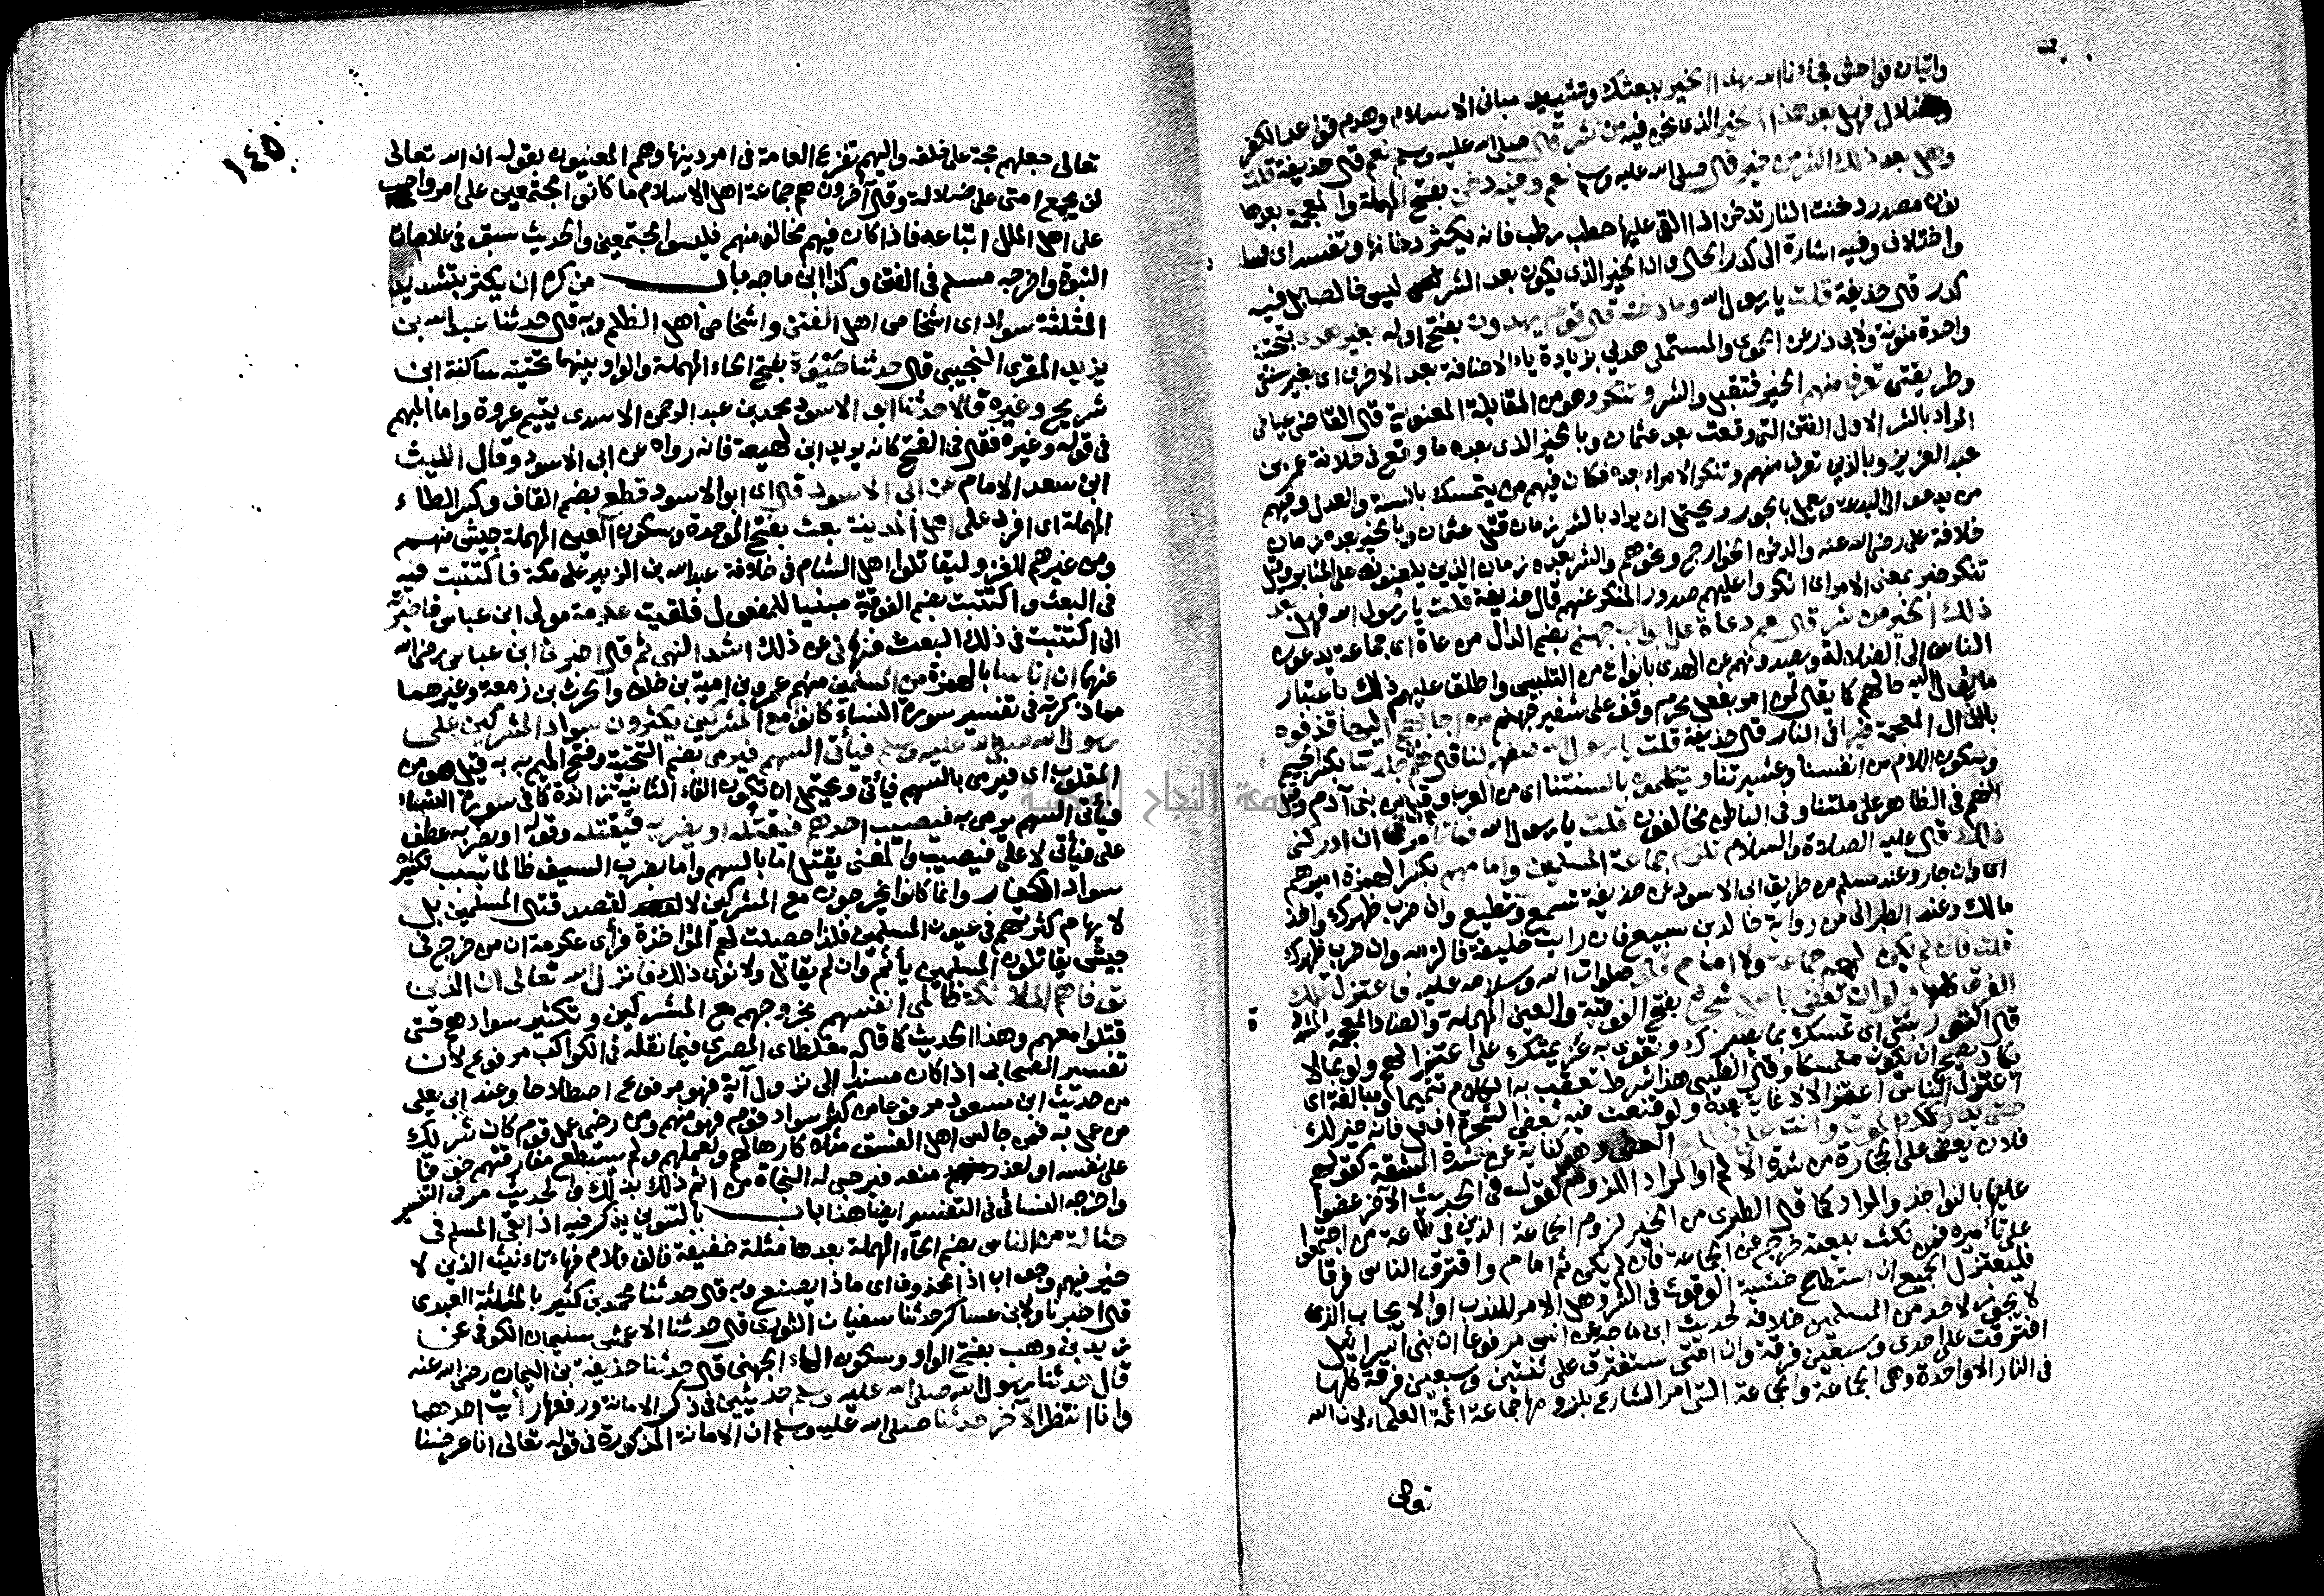 واتيان فواحش فجاءنا الله بهذا الخير ببعثتك وتشييد مباني الاسلام وهدم قواعد الكفر
والضلال فهل بعد هذا الخير الذي نحن فيه من شر قال صلى الله عليه وسلم نعم قال حذيفة قلت
وهل بعد ذلك الشر من خير قال صلى الله عليه وسلم نعم وفيه دخن بفتح المهملة والمعجمة بعدها
نون مصدر دخنت النار تدخن اذا القي عليها حطب رطب فانه يكثر دخانها وتفسد اي فساد
واختلاف وفيه اشارة الى كدر الحال وان الخير الذي يكون بعد الشر ليس خالصا بل فيه
كدر قال حذيفة قلت يا رسول الله وما دخنه قال قوم يهدون بفتح اوله بغير هدى بتحتية
واحدة منونة ولابي ذر عن الحموي والمستملي هديي بزيادة ياء الاضافة بعد الاخرى اي بغير سنتي
وطريقتي تعرف منهم الخير فتقبل والشر وتنكر وهو من المقابلة المعنوية قال القاضي عياض
المراد بالشر الاول الفتن التي وقعت بعد عثمان وبالخير الذي بعده ما وقع في خلافة عمر بن
عبد العزيز وبالذين تعرف منهم وتنكر الامراء بعده فكان فيهم من يتمسك بالسنة والعدل وفيهم
من يدعو الى البدعة ويعمل بالجور ويحتمل ان يراد بالشر زمان قتل عثمان وبالخير بعده زمان
خلافة علي رضي الله عنه والدخن الخوارج ونحوهم والشر بعده زمان الذين يلعنونه على المنابر وقيل
تنكر خبر بمعنى الامر اي انكروا عليهم صدور المنكر عنهم قال حذيفة قلت يا رسول الله فهل بعد
ذلك الخير من شر قال هم دعاة على ابواب جهنم بضم الدال من دعاة اي جماعة يدعون
الناس الى الضلالة ويصدونهم عن الهدى بانواع من التلبيس واطلق عليهم ذلك باعتبار
ما يؤول اليه حالهم كما يقال لمن امر بفعل محرم وقف على شفير جهنم من اجابهم اليها قذفوه
بالذال المعجمة فيها في النار قال حذيفة قلت يا رسول الله صفهم لنا قال هم من جلدتنا بكسر الجيم
وسكون اللام من انفسنا وعشيرتنا ويتكلمون بالسنتنا اي من العرب وقيل من بني آدم وقيل
انهم في الظاهر على ملتنا وفي الباطن مخالفون قلت يا رسول الله فما تامرني ان ادركني
ذلك قال عليه الصلاة والسلام تلزم جماعة المسلمين وامامهم بكسر الهمزة اميرهم
اي وان جار وعند مسلم من طريق ابي الاسود عن حذيفة تسمع وتطيع وان ضرب ظهرك واخذ
مالك وعند الطبراني من رواية خالد بن سبيع فان رايت خليفة فالزمه وان ضرب ظهرك
قلت فان لم يكن لهم جماعة ولا امام قال صلوات الله وسلامه عليه فاعتزل تلك
الفرق كلها ولو ان تعض باصل شجرة بفتح الفوقية والعين المهملة والضاد المعجمة المشددة
قال التوربشتي اي تمسك بما يصبرك وتقوى به عزيمتك على اعتزالهم ولو بما لا
يكاد يصح ان يكون متمسكا وقال الطيبي هذا شرط تعقب به الكلام تتميما ومبالغة اي
اعتزل الناس اعتزالا لا غاية بعده ولو قنعت فيه بعض الشجرة افعل فانه خير لك
حتى يدركك الموت وانت على ذلك العض وهو كناية عن شدة المشقة كقولهم
فلان يعض على الحجارة من شدة الالم او المراد اللزوم كقوله في الحديث الآخر عضوا
عليها بالنواجذ والمراد كما قال الطبري من الخير لزوم الجماعة الذين في طاعة من اجتمعوا
على تأميره فمن نكث بيعته خرج عن الجماعة فان لم يكن ثم امام وافترق الناس فرقا
فليعتزل الجميع ان استطاع خشية الوقوع في الشر وهل الامر للندب او الايجاب الذي
لا يجوز لاحد من المسلمين خلافه لحديث ابن ماجه عن انس مرفوعا ان بني اسرائيل
افترقت على احدى وسبعين فرقة وان امتي ستفترق على ثنتين وسبعين فرقة كلها
في النار الا واحدة وهي الجماعة والجماعة التي امر الشارع بلزومها جماعة ائمة العلماء لان الله
تعالى
١٤٥
تعالى جعلهم حجة على خلقه واليهم تفزع العامة في امر دينها وهم المعنيون بقوله ان الله تعالى
لن يجمع امتي على ضلالة وقال آخرون هم جماعة اهل الاسلام ما كانوا مجتمعين على امر واجب
على اهل الملل اتباعه فاذا كان فيهم مخالف منهم فليسوا مجتمعين والحديث سبق في علامات
النبوة واخرجه مسلم في الفتن وكذا ابن ماجه باب من كره ان يكثر بتشديد
المثلثة سواد اي اشخاص اهل الفتن واشخاص اهل الظلم وبه قال حدثنا عبد الله بن
يزيد المقرئ التجيبي قال حدثنا حَيْوَة بفتح الحاء المهملة والواو بينهما تحتية ساكنة ابن
شريح وغيره قالا حدثنا ابو الاسود محمد بن عبد الرحمن الاسدي يتيم عروة واما المبهم
في قوله وغيره فقال في الفتح كانه يريد ابن لهيعة فانه رواه عن ابي الاسود وقال الليث
ابن سعد الامام عن ابي الاسود قال اي ابو الاسود قطع بضم القاف وكسر الطاء
المهملة اي افرد على اهل المدينة بعث بفتح الموحدة وسكون العين المهملة جيش منهم
ومن غيرهم للغزو ليقاتلوا اهل الشام في خلافة عبد الله بن الزبير على مكة فاكتتبت فيه
في البعث واكتتبت بضم الفوقية مبنيا للمفعول فلقيت عكرمة مولى ابن عباس فاخبرته
اني اكتتبت في ذلك البعث فنهاني عن ذلك اشد النهي ثم قال اخبرني ابن عباس رضي الله
عنهما ان اناسا بالهمزة من المسلمين منهم عمرو بن امية بن خلف والحرث بن زمعة وغيرهما
مما ذكرته في تفسير سورة النساء كانوا مع المشركين يكثرون سواد المشركين على
رسول الله صلى الله عليه وسلم فيأتي السهم فيرمى بضم التحتية وفتح الميم به قيل هو من
المقلوب اي فيرمى بالسهم فيأتي ويحتمل ان تكون الفاء الثانية زائدة كما في سورة النساء
فيأتي السهم يرمى به فيصيب احدهم فيقتله او يضربه فيقتله وقوله او يضربه عطف
على فيأتي لا على فيصيب والمعنى يقتل اما بالسهم واما بضرب السيف ظالما بسبب تكثير
سواد الكفار وانما كانوا يخرجون مع المشركين لا لقصد قتال المسلمين بل
لايهام كثرتهم في عيون المسلمين فلذا حصلت لهم المؤاخذة فرأى عكرمة ان من خرج في
جيش يقاتلون المسلمين يأثم وان لم يقاتل ولا نوى ذلك فانزل الله تعالى ان الذين
توفاهم الملائكة ظالمي انفسهم بخروجهم مع المشركين وتكثير سوادهم حتى
قتلوا معهم وهذا الحديث كما قاله مغلطاي المصري فيما نقله في الكواكب مرفوع لان
تفسير الصحابي اذا كان مسندا الى نزول آية فهو مرفوع اصطلاحا وعند ابي يعلى
من حديث ابن مسعود مرفوعا من كثر سواد قوم فهو منهم ومن رضي عمل قوم كان شريك
من عمل به فمن جالس اهل الفسق مثلا كارها لهم ولعملهم ولم يستطع مفارقتهم خوفا
على نفسه او لعذر منعه فيرجى له النجاة من اثم ذلك بذلك والحديث مر في التفسير
واخرجه النسائي في التفسير ايضا هذا باب بالتنوين يذكر فيه اذا بقي المسلم في
حثالة من الناس بضم الحاء المهملة بعدها مثلثة خفيفة فالف فلام فهاء تأنيث الذين لا
خير فيهم وجواب اذا محذوف اي ماذا يصنع وبه قال حدثنا محمد بن كثير بالمثلثة العبدي
قال اخبرنا ولابن عساكر حدثنا سفيان الثوري قال حدثنا الاعمش سليمان الكوفي عن
زيد بن وهب بفتح الواو وسكون الهاء الجهني قال حدثنا حذيفة بن اليمان رضي الله عنه
قال حدثنا رسول الله صلى الله عليه وسلم حديثين في ذكر الامانة ورفعها رأيت احدهما
وانا انتظر الآخر حدثنا صلى الله عليه وسلم ان الامانة المذكورة في قوله تعالى انا عرضنا